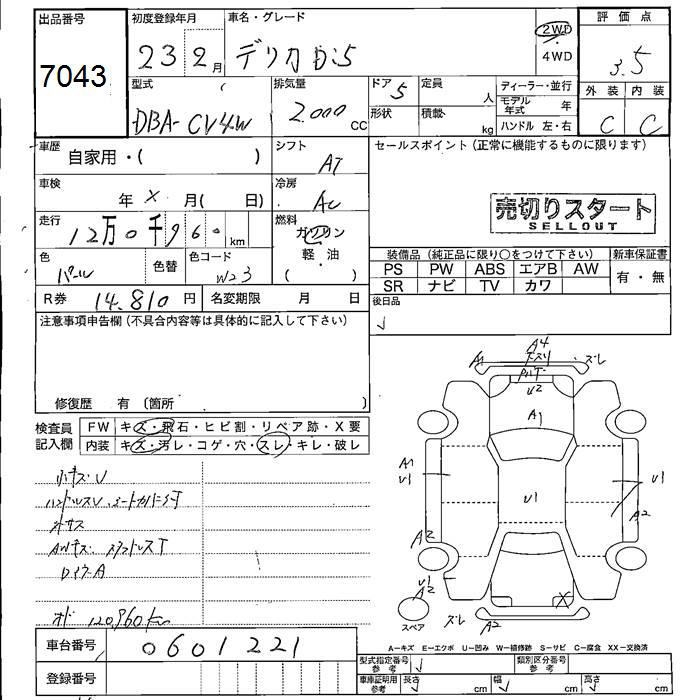 出品番号
7043
初度登録年月
23 2月
車名・グレード
デリカD:5
2WD
4WD
評価点
3.5
外装 内装
C C
型式
DBA-CV4W
排気量
2.000 CC
ドア 5
形状
定員 人
積載 kg
ディーラー・並行
モデル年式 年
ハンドル 左・右
車歴
自家用・( )
シフト
AT
セールスポイント(正常に機能するものに限ります)
売切りスタート
SELLOUT
車検
年 X 月( 日)
冷房
AC
走行
12万0千960km
燃料
ガソリン
軽・油
( )
色
パール
色替
色コード
W23
R券 14.810円
名変期限 月 日
装備品(純正品に限り○をつけて下さい)
新車保証書
PS PW ABS エアB AW
SR ナビ TV カワ
有・無
後日品
注意事項申告欄(不具合内容等は具体的に記入して下さい)
修復歴 有(箇所 )
検査員記入欄
FW キズ・飛石・ヒビ割・リペア跡・X要
内装 キズ・汚レ・コゲ・穴・スレ・キレ・破レ
オド 120,960km
A4
A1 ズレ
U2
A1
A1
U1
U1
U1
A2
A2
U1
A2
X
スペア
ズレ A2
車台番号
0601221
登録番号
A-キズ E-エクボ U-凹み W-補修跡 S-サビ C-腐食 XX-交換済
型式指定番号 参考
類別区分番号 参考
車庫証明用 参考
長さ cm 幅 cm 高さ cm